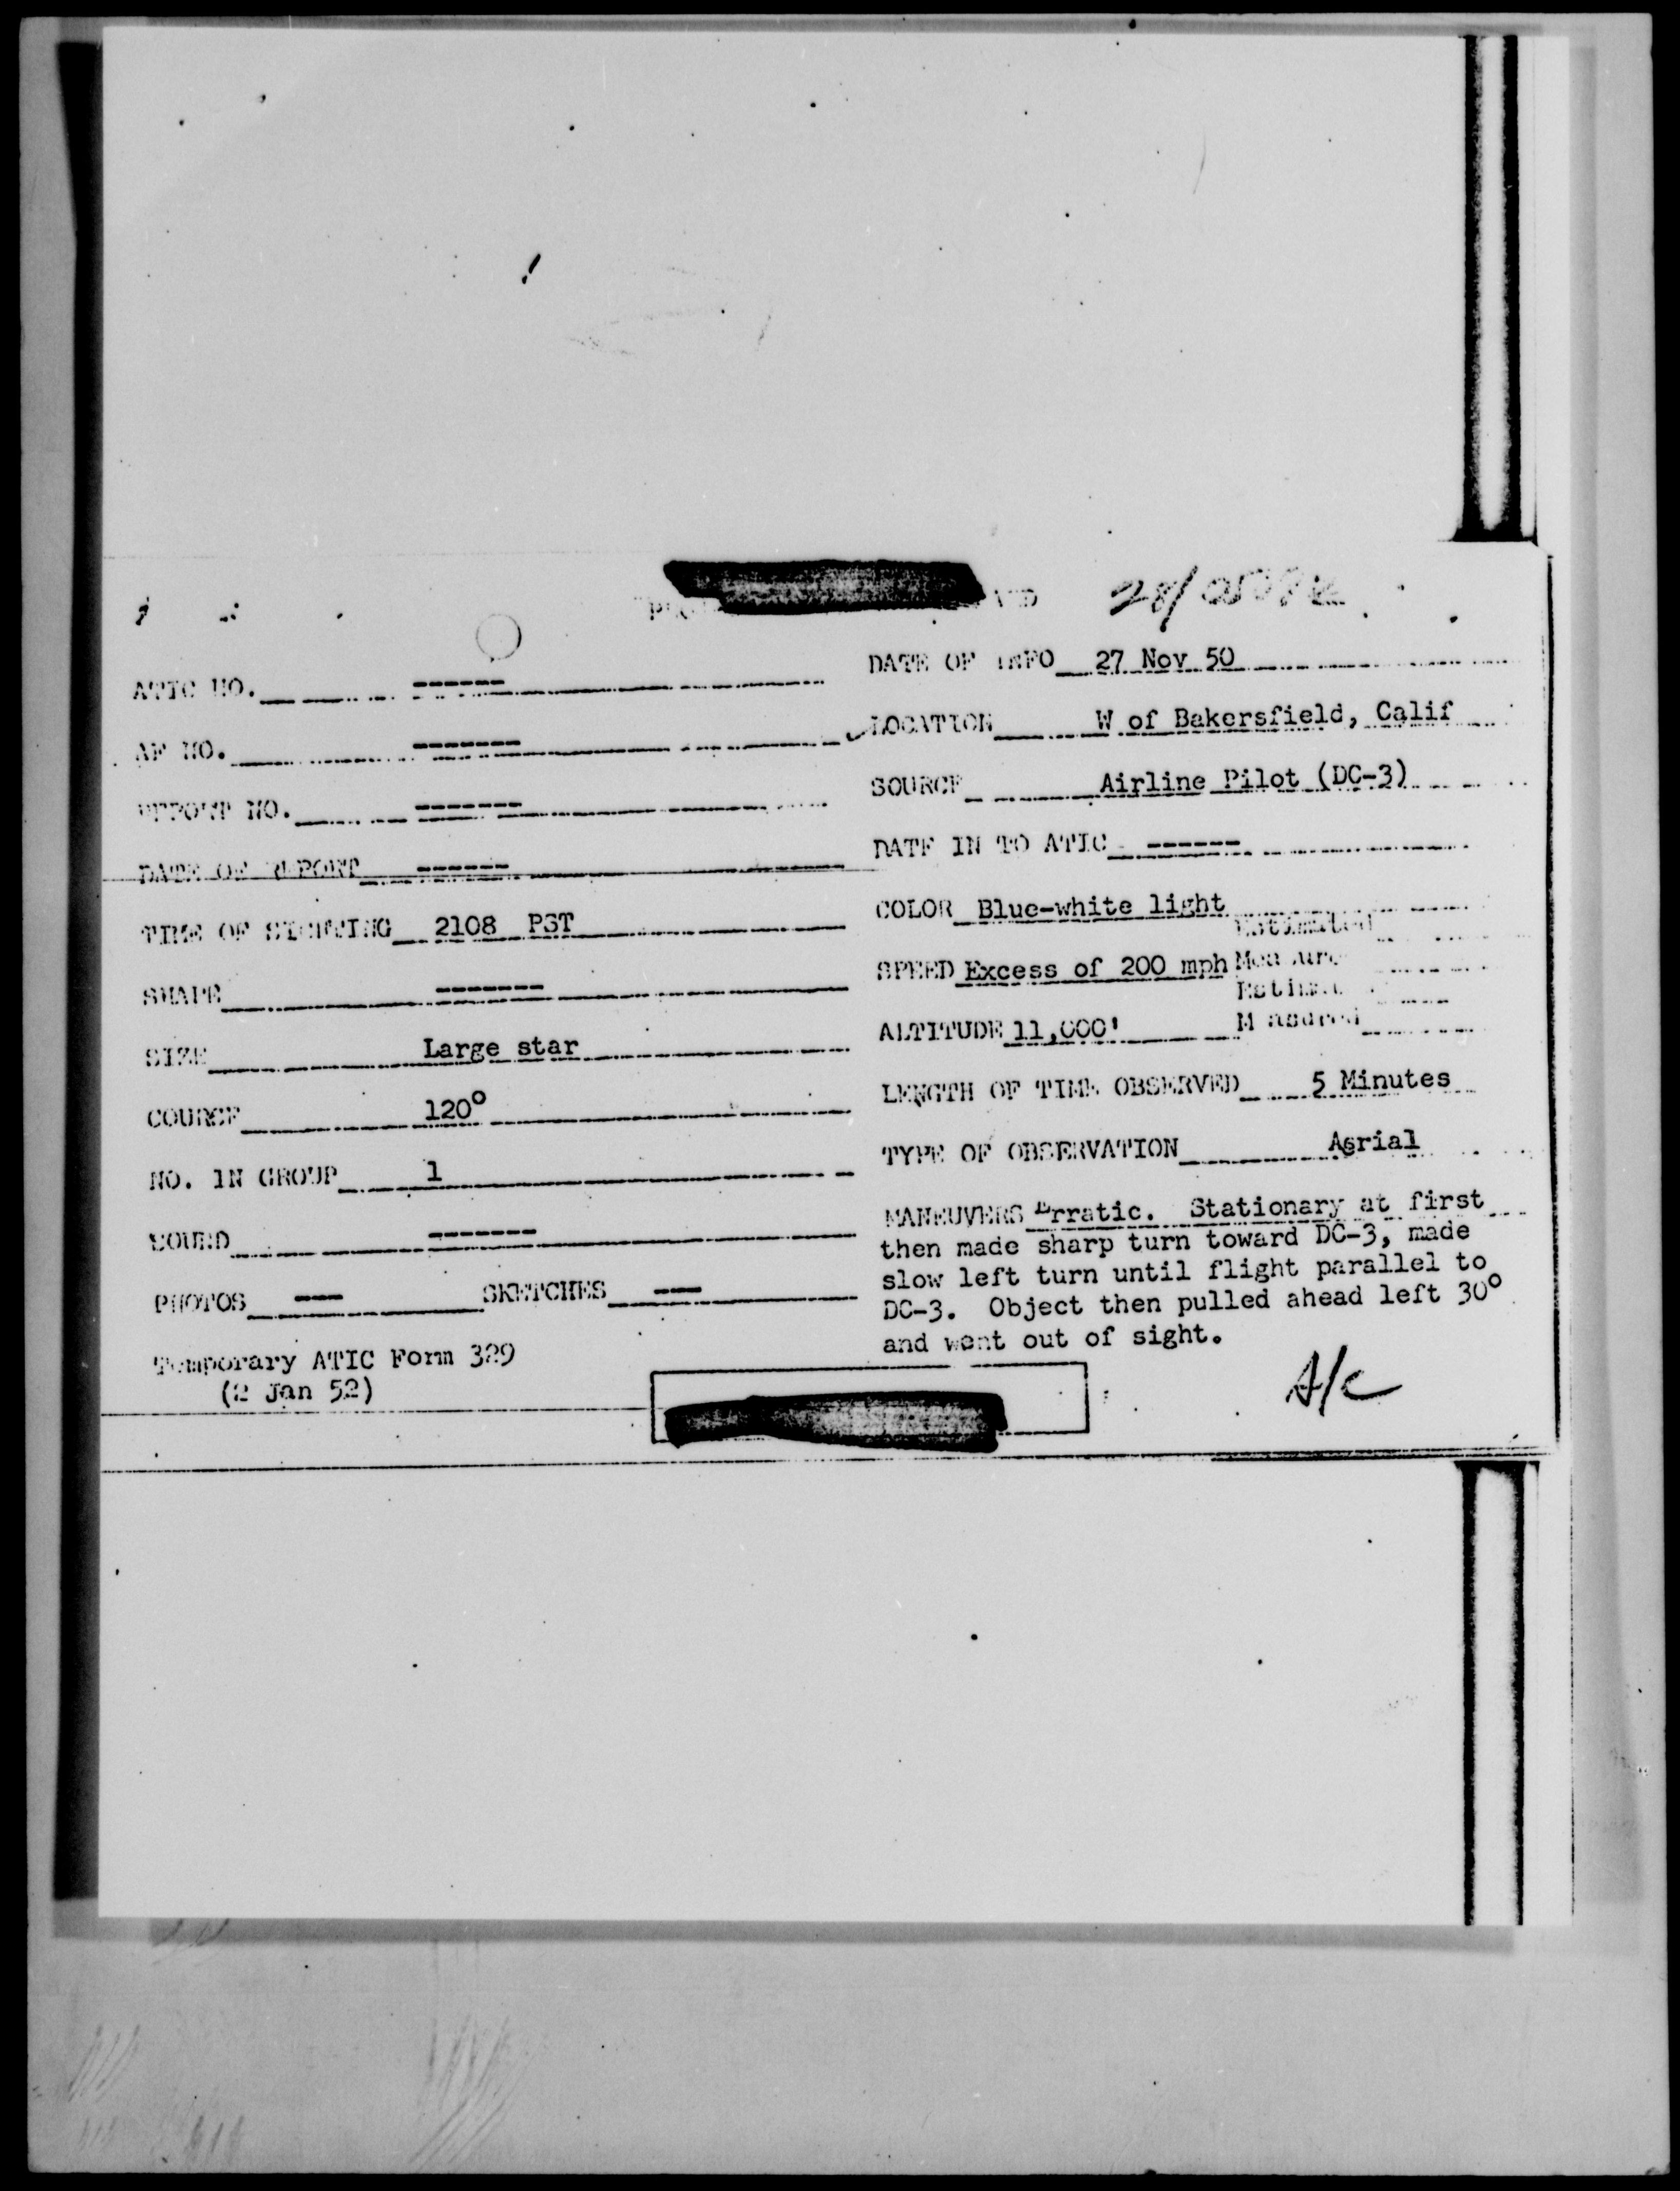 28/
ATIC NO. ------
DATE OF INFO 27 Nov 50
AF NO. -------
LOCATION W of Bakersfield, Calif
REPORT NO. -------
SOURCE Airline Pilot (DC-3)
DATE OF REPORT ------
DATE IN TO ATIC ------
TIME OF SIGHTING 2108 PST
COLOR Blue-white light
Estimated
SHAPE -------
SPEED Excess of 200 mph Measured
Estimated
SIZE Large star
ALTITUDE 11,000' Measured
COURSE 120°
LENGTH OF TIME OBSERVED 5 Minutes
NO. IN GROUP 1
TYPE OF OBSERVATION Aerial
SOUND -------
MANEUVERS Erratic. Stationary at first
then made sharp turn toward DC-3, made
slow left turn until flight parallel to
DC-3. Object then pulled ahead left 30°
and went out of sight.
PHOTOS --- SKETCHES ---
Temporary ATIC Form 329
(2 Jan 52)
A/C